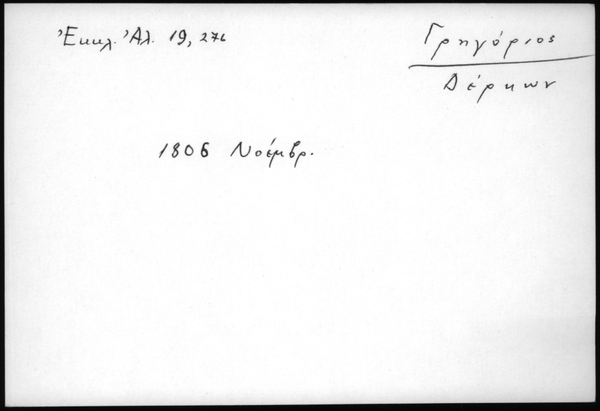 Ἐκκλ. Ἀλ. 19, 276
Γρηγόριος
Δέρκων
1806 Νοέμβρ.